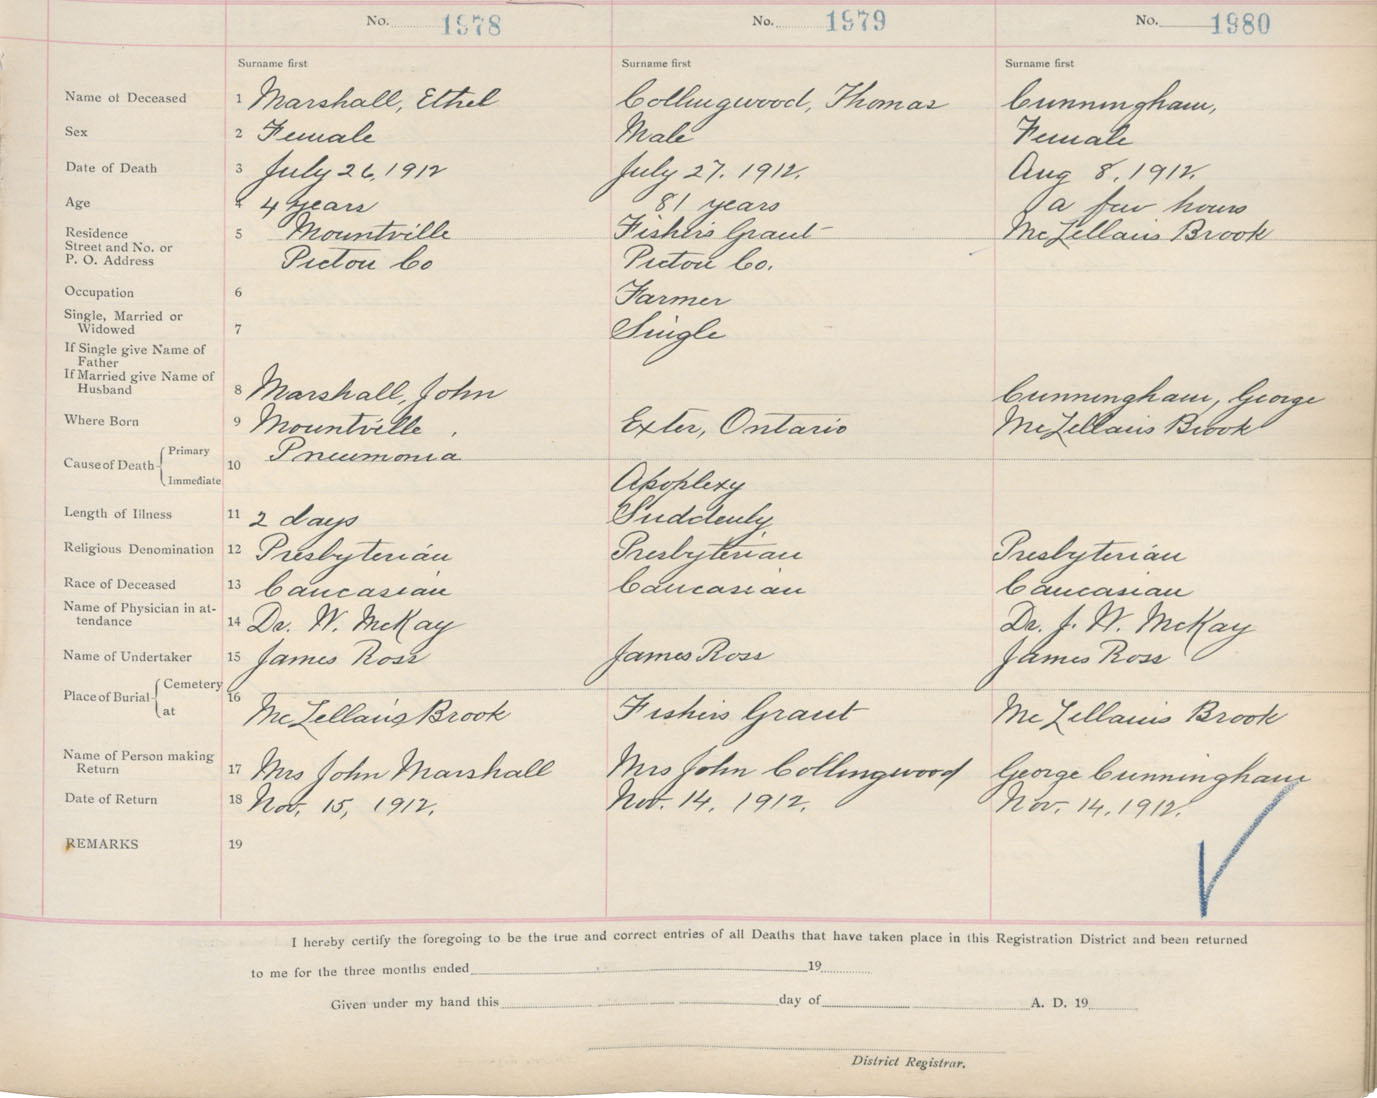 No. 1978 No. 1979 No. 1980
Surname first Surname first Surname first
Name of Deceased 1 Marshall, Ethel Collingwood, Thomas Cunningham,
Sex 2 Female Male Female
Date of Death 3 July 26, 1912 July 27. 1912. Aug 8, 1912.
Age 4 4 years 81 years a few hours
Residence 5 Mountville Fisher's Grant McLellan's Brook
Street and No. or
P. O. Address Pictou Co Pictou Co.
Occupation 6 Farmer
Single, Married or
Widowed 7 Single
If Single give Name of
Father
If Married give Name of
Husband 8 Marshall, John Cunningham, George
Where Born 9 Mountville, Exter, Ontario McLellan's Brook
Cause of Death Primary 10 Pneumonia
Immediate Apoplexy
Length of Illness 11 2 days Suddenly
Religious Denomination 12 Presbyterian Presbyterian Presbyterian
Race of Deceased 13 Caucasian Caucasian Caucasian
Name of Physician in at-
tendance 14 Dr. W. McKay Dr. J. W. McKay
Name of Undertaker 15 James Ross James Ross James Ross
Place of Burial Cemetery 16
at McLellan's Brook Fisher's Grant McLellan's Brook
Name of Person making
Return 17 Mrs John Marshall Mrs John Collingwood George Cunningham
Date of Return 18 Nov. 15, 1912. Nov. 14, 1912. Nov. 14, 1912.
REMARKS 19
I hereby certify the foregoing to be the true and correct entries of all Deaths that have taken place in this Registration District and been returned
to me for the three months ended 19
Given under my hand this day of A. D. 19
District Registrar.